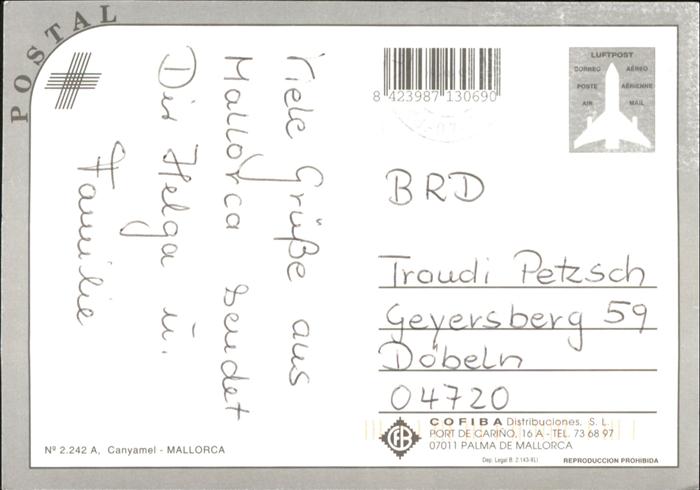 POSTAL
Viele Grüße aus
Mallorca sendet
Dir Helga u.
Familie
8 423987 130690
LUFTPOST
CORREO AÉREO
POSTE AÉRIENNE
AIR MAIL
BRD
Traudi Petzsch
Geyersberg 59
Döbeln
04720
COFIBA Distribuciones, S. L.
PORT DE CARIÑO, 16 A - TEL. 73 68 97
07011 PALMA DE MALLORCA
Nº 2.242 A, Canyamel - MALLORCA
Dep. Legal B. 2.143-XLI
REPRODUCCION PROHIBIDA